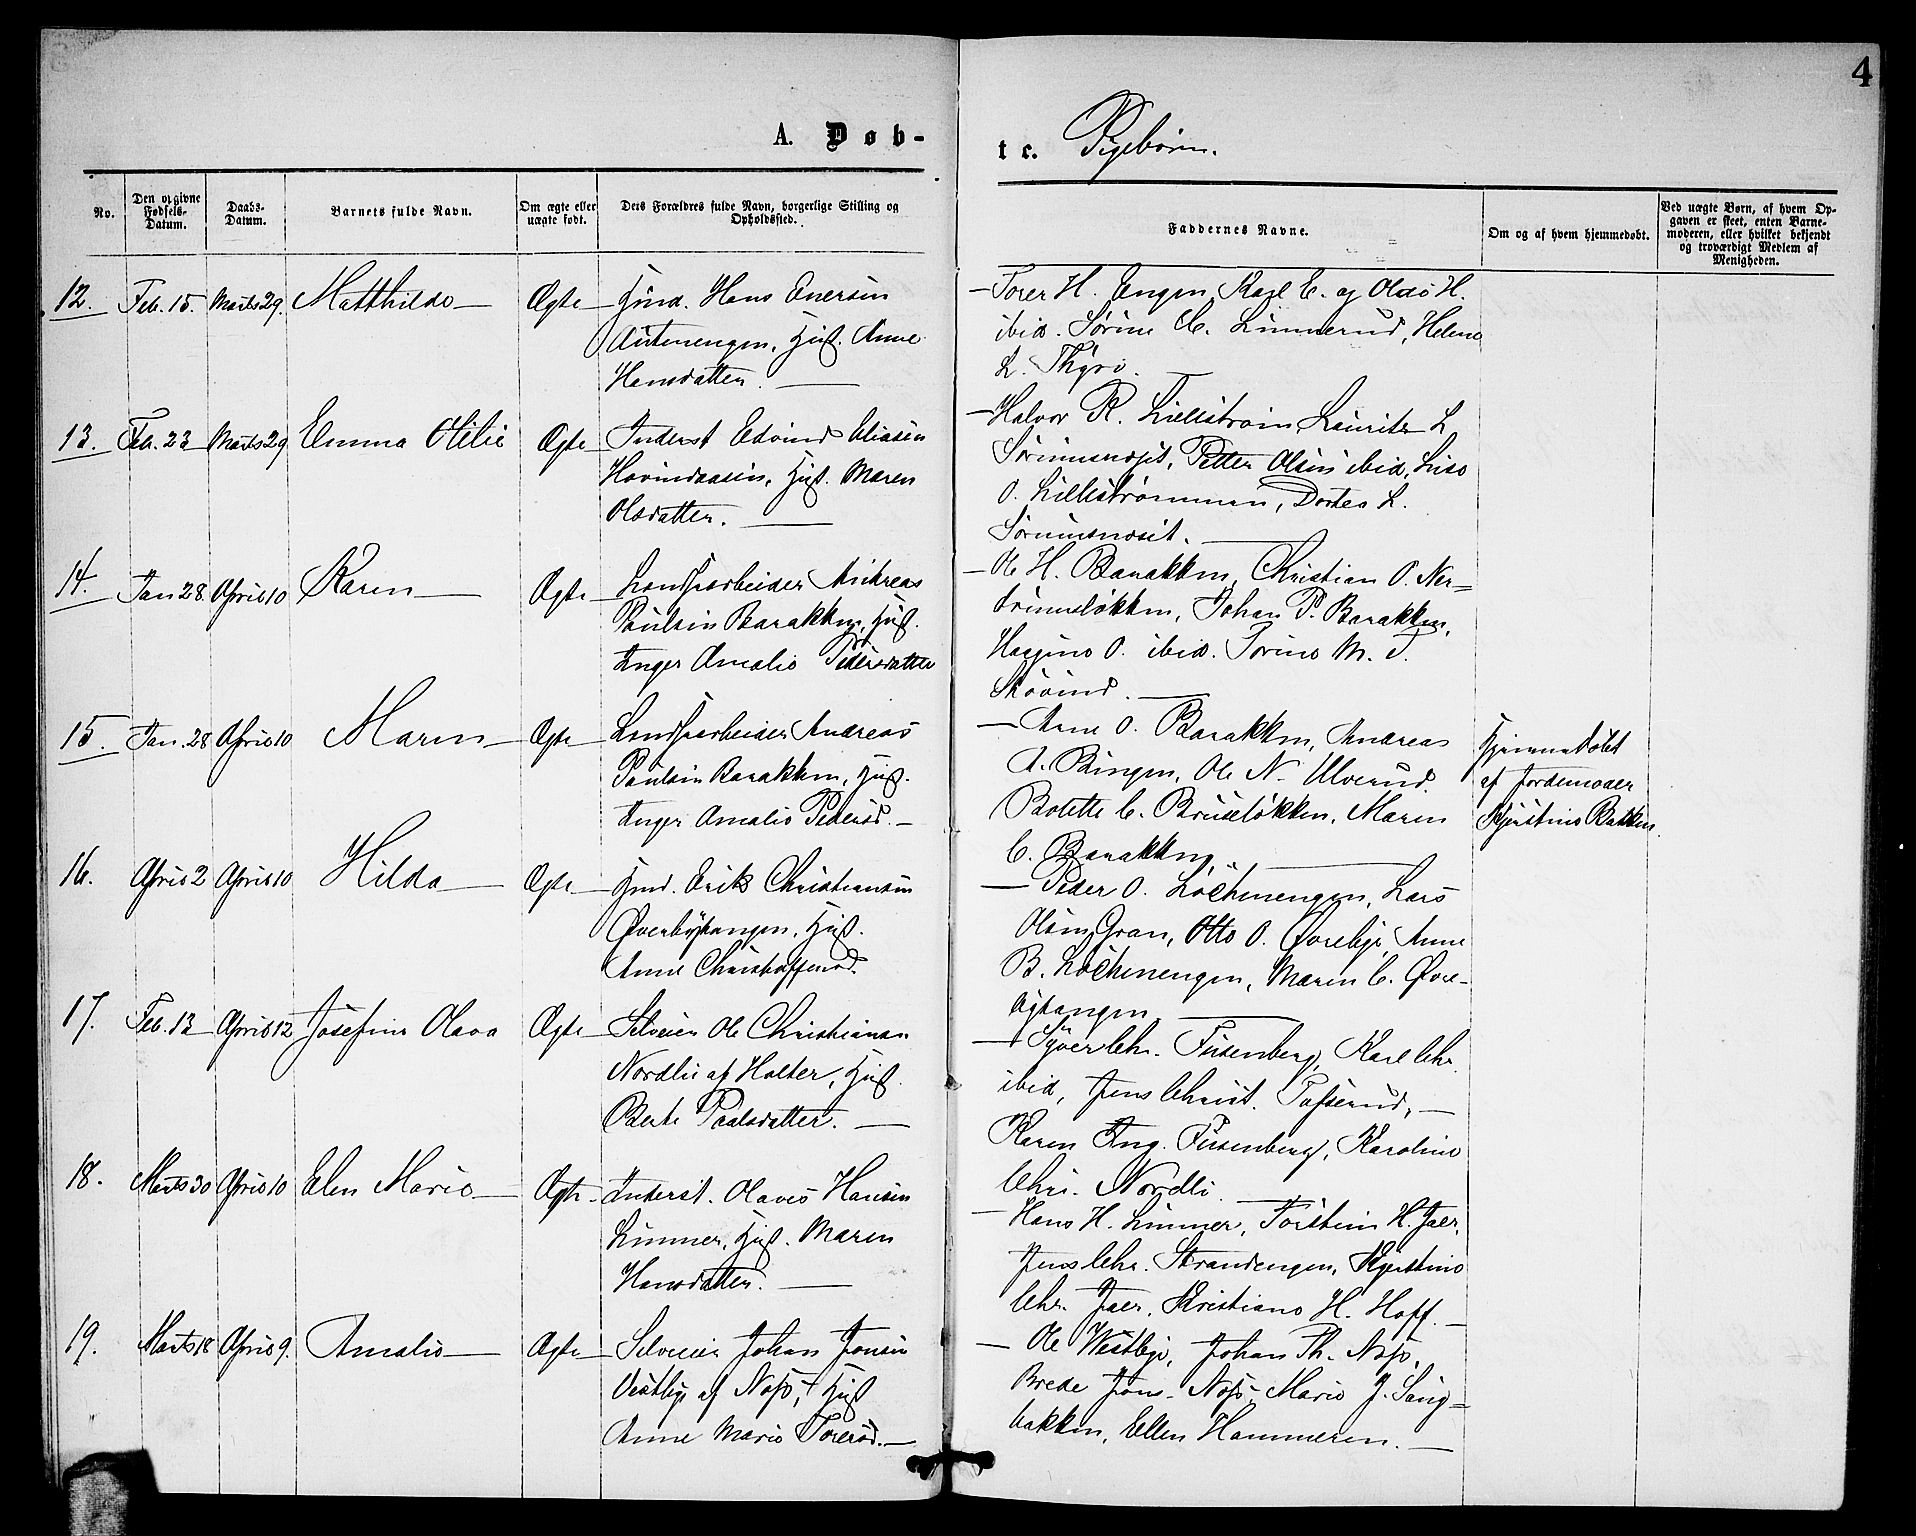 4
A. Døb-
te. Pigebørn.
No.
Den opgivne Fødsels-Datum.
Daabs-Datum.
Barnets fulde Navn.
Om ægte eller uægte født.
Dets Forældres fulde Navn, borgerlige Stilling og Opholdssted.
Faddernes Navne.
Om og af hvem hjemmedøbt.
Ved uægte Børn, af hvem Opgaven er skeet, enten Barnemoderen, eller hvilket bekjendt og troværdigt Medlem af Menigheden.
12. Feb. 15. Marts 29. Matthilde Ægte Hmd. Hans Enersen
Hust. Anne
Hansdatter.
Torer H. Engen, Karl E. og H.
ibid. Sørine C. Linnerud, Helene
L.
13. Feb. 23 Marts 29 Emma Otilie Ægte Inderst Edvind Eliasen
Hovindaasen, Hust. Maren
Olsdatter.
Halvor R. Lillestrøm, Laurits L.
Petter Olsen ibid, Lise
O. Lillestrømmen, Dortea L.
14. Jan 28. April 10 Karen Ægte Landharbeider Andreas
Poulsen Barakken, Hust.
Inger Amalie Pedersdatter
Ole H. Barakken, Christian O. Ner-
Johan P. Barakken,
O. ibid. M. J.
15. Jan. 28 April 10 Maren Ægte Andreas
Poulsen Barakken, Hust.
Inger Amalie Pedersd.
Arne O. Barakken, Andreas
A. Bingen, Ole N. Ulverud
Bolette C. Bruseløkken, Maren
C. Barakken.
Hjemmedøbt
af Jordemoder
Kjerstine Bakken.
16. April 2 April 10 Hilda Ægte Hmd. Erik Christiansen
Øverbyhangen, Hust.
Anne Christoffersd.
Peder O. Lochenengen, Lars
Olsen Gran, Otto O. Øvreby, Anne
B. Lochenengen, Maren C. Øvre-
byhangen
17. Feb. 13 April 12 Josefine Olava Ægte Selveier Ole Christiansen
Nordlie af Holter, Hust.
Berte Paalsdatter.
Syver Chr. Fusenberg, Karl Chr.
ibid, Jens Christ.
Karen Ing. Fusenberg, Karoline
Chr. Nordli.
18. Marts 30 April 10 Elen Marie Ægte Inderst. Olaves Hansen
Linner, Hust. Maren
Hansdatter.
Hans H. Linner, Torstein H. Jaer,
Jens Chr. Strandengen, Kjerstine
Chr. Jaer, Kristiane H. Hoff.
19. Marts 18 April 9. Amalie Ægte Selveier Johan Jonsen
Vestby af Næss, Hust
Anne Marie Torersd.
Ole Westby, Johan Th. Næss,
Brede Jons. Næss, Marie J. Sang-
bakken, Ellen Hammeren.